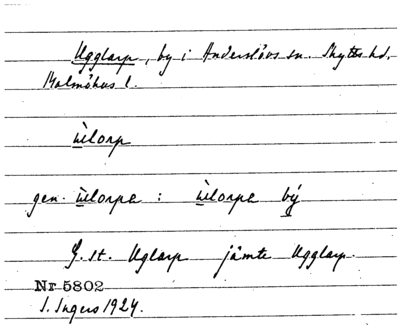 Ugglarp, by i Anderslövs sn. Skytts hd.
Malmöhus l.
ùelorp
gen. ùelorpa : ùelorpa bý
G. st. Uglarp jämte Ugglarp.
Nr 5802
I. Ingers 1924.